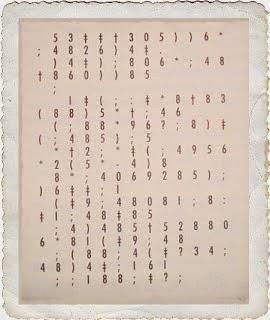 5 3 ‡ ‡ † 3 0 5 ) ) 6 *
; 4 8 2 6 ) 4 ‡ .
) 4 ‡ ) ; 8 0 6 * ; 4 8
† 8 6 0 ) ) 8 5
1 ‡ ( ; : ‡ * 8 † 8 3
( 8 8 ) 5 * † ; 4 6
( ; 8 8 * 9 6 ? ; 8 ) ‡
* † 2 : * ‡ ( ; 4 9 5 6
* 2 ( 5 * - 4 ) 8
8 * ; 4 0 6 9 2 8 5 ) ;
) 6 ‡ ‡ ; 1
( ‡ 9 ; 4 8 0 8 1 ; 8 :
‡ 1 ; 4 8 ‡ 8 5
; 4 ) 4 8 5 † 5 2 8 8 0
6 * 8 1 ( ‡ 9 ; 4 8
; ( 8 8 ; 4 ( ‡ ? 3 4 ;
4 8 ) 4 ‡ ; 1 6 1
; : 1 8 8 ; ‡ ? ;